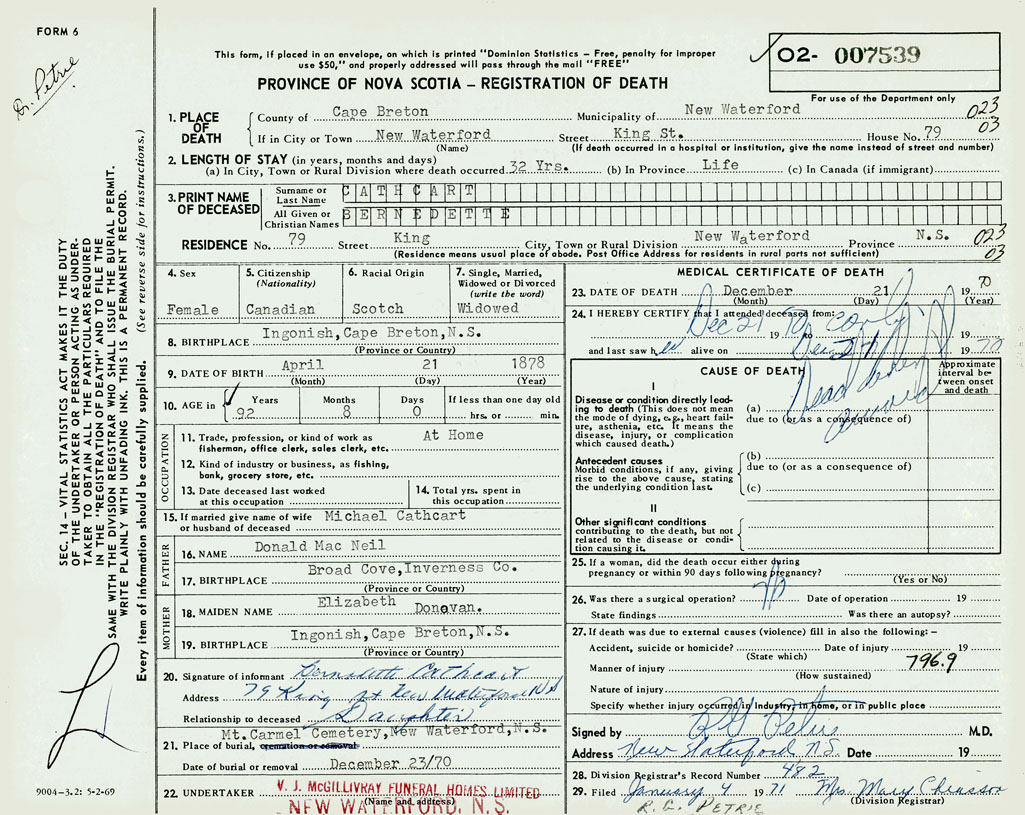 FORM 6
Dr. Petrie
This form, if placed in an envelope, on which is printed "Dominion Statistics – Free, penalty for improper
use $50," and properly addressed will pass through the mail "FREE"
PROVINCE OF NOVA SCOTIA – REGISTRATION OF DEATH
02- 007539
For use of the Department only
1. PLACE OF DEATH
County of Cape Breton Municipality of New Waterford 023
If in City or Town New Waterford Street King St. House No. 79 03
(Name) (If death occurred in a hospital or institution, give the name instead of street and number)
2. LENGTH OF STAY (in years, months and days)
(a) In City, Town or Rural Division where death occurred 32 Yrs. (b) In Province Life (c) In Canada (if immigrant)
3. PRINT NAME OF DECEASED
Surname or Last Name CATHCART
All Given or Christian Names BERNEDETTE
RESIDENCE No. 79 Street King City, Town or Rural Division New Waterford Province N.S. 023
(Residence means usual place of abode. Post Office Address for residents in rural parts not sufficient) 03
4. Sex
Female
5. Citizenship
(Nationality)
Canadian
6. Racial Origin
Scotch
7. Single, Married,
Widowed or Divorced
(write the word)
Widowed
8. BIRTHPLACE Ingonish, Cape Breton, N.S.
(Province or Country)
9. DATE OF BIRTH April 21 1878
(Month) (Day) (Year)
10. AGE in Years Months Days If less than one day old
92 8 0 hrs. or min.
OCCUPATION
11. Trade, profession, or kind of work as At Home
fisherman, office clerk, sales clerk, etc.
12. Kind of industry or business, as fishing,
bank, grocery store, etc.
13. Date deceased last worked
at this occupation
14. Total yrs. spent in
this occupation
15. If married give name of wife Michael Cathcart
or husband of deceased
FATHER
16. NAME Donald Mac Neil
17. BIRTHPLACE Broad Cove, Inverness Co.
(Province or Country)
MOTHER
18. MAIDEN NAME Elizabeth Donovan.
19. BIRTHPLACE Ingonish, Cape Breton, N.S.
(Province or Country)
20. Signature of informant Bernadette Cathcart
Address 79 King St New Waterford NS
Relationship to deceased Daughter
Mt. Carmel Cemetery, New Waterford, N.S.
21. Place of burial, cremation or removal
Date of burial or removal December 23/70
22. UNDERTAKER V. J. McGILLIVRAY FUNERAL HOMES LIMITED
(Name and address)
NEW WATERFORD, N. S.
MEDICAL CERTIFICATE OF DEATH
23. DATE OF DEATH December 21 1970
(Month) (Day) (Year)
24. I HEREBY CERTIFY that I attended deceased from:
Dec 21 19 to 19
and last saw her alive on Dec 21 19 70
CAUSE OF DEATH
Approximate
interval between
onset
and death
I
Disease or condition directly leading
to death (This does not mean
the mode of dying, e.g., heart failure,
asthenia, etc. It means the
disease, injury, or complication
which caused death.)
(a) Dead
due to (or as a consequence of)
Antecedent causes
Morbid conditions, if any, giving
rise to the above cause, stating
the underlying condition last.
(b)
due to (or as a consequence of)
(c)
II
Other significant conditions
contributing to the death, but not
related to the disease or condition
causing it.
25. If a woman, did the death occur either during
pregnancy or within 90 days following pregnancy?
(Yes or No)
26. Was there a surgical operation? No Date of operation 19
State findings Was there an autopsy?
27. If death was due to external causes (violence) fill in also the following: –
Accident, suicide or homicide? Date of injury 19
(State which)
Manner of injury 796.9
(How sustained)
Nature of injury
Specify whether injury occurred in industry, in home, or in public place
Signed by R G Petrie M.D.
Address New Waterford N.S. Date 19
28. Division Registrar's Record Number 482
29. Filed January 4 1971 Mrs. Mary Chiasson
(Division Registrar)
R. G. PETRIE
SEC. 14 – VITAL STATISTICS ACT MAKES IT THE DUTY
OF THE UNDERTAKER OR PERSON ACTING AS UNDER-
TAKER TO OBTAIN ALL THE PARTICULARS REQUIRED
IN THE "REGISTRATION OF DEATH" AND TO FILE THE
SAME WITH THE DIVISION REGISTRAR WHO SHALL ISSUE THE BURIAL PERMIT.
WRITE PLAINLY WITH UNFADING INK. THIS IS A PERMANENT RECORD.
Every item of information should be carefully supplied. (See reverse side for instructions.)
9004-3.2: 5-2-69